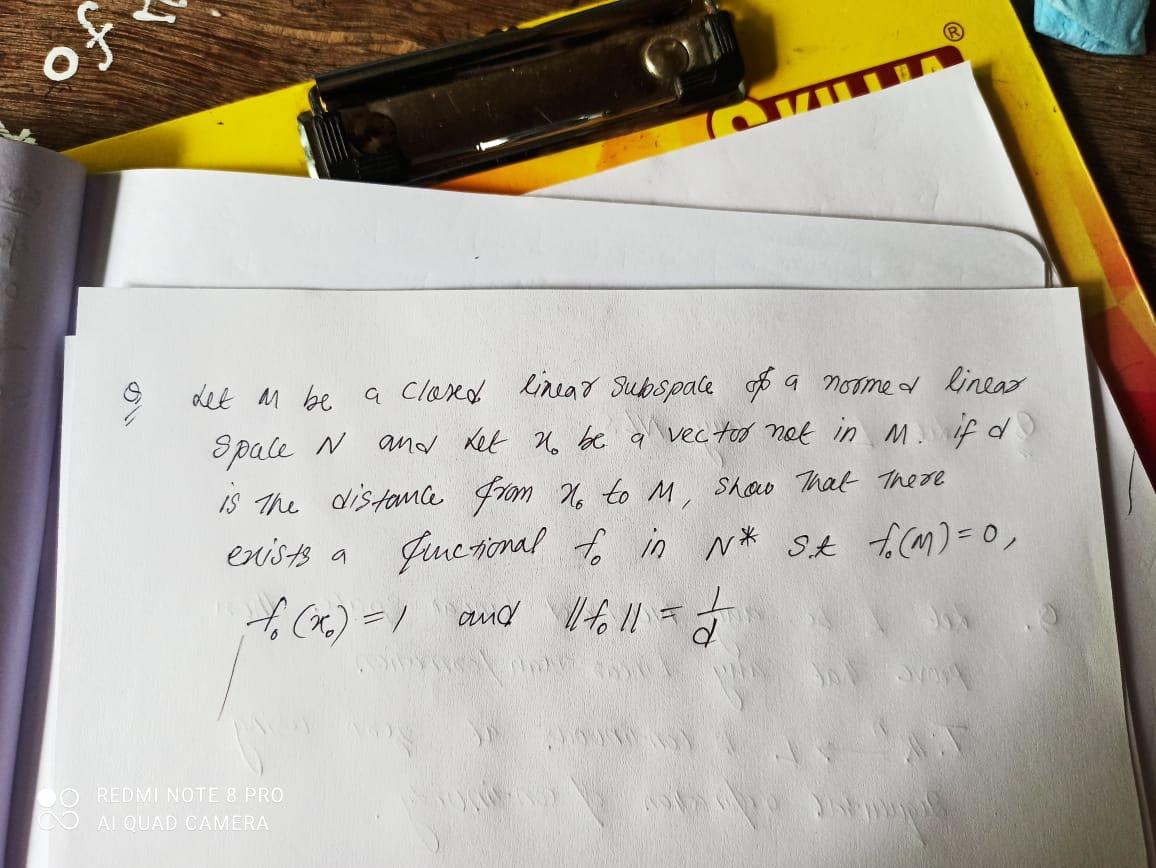 SKILL
®
Q Let M be a closed linear subspace of a normed linear
space N and let x₀ be a vector not in M. if d
is the distance from x₀ to M, show that there
exists a functional f₀ in N* s.t f₀(M)=0,
f₀(x₀)=1 and ||f₀|| = 1/d
REDMI NOTE 8 PRO
AI QUAD CAMERA